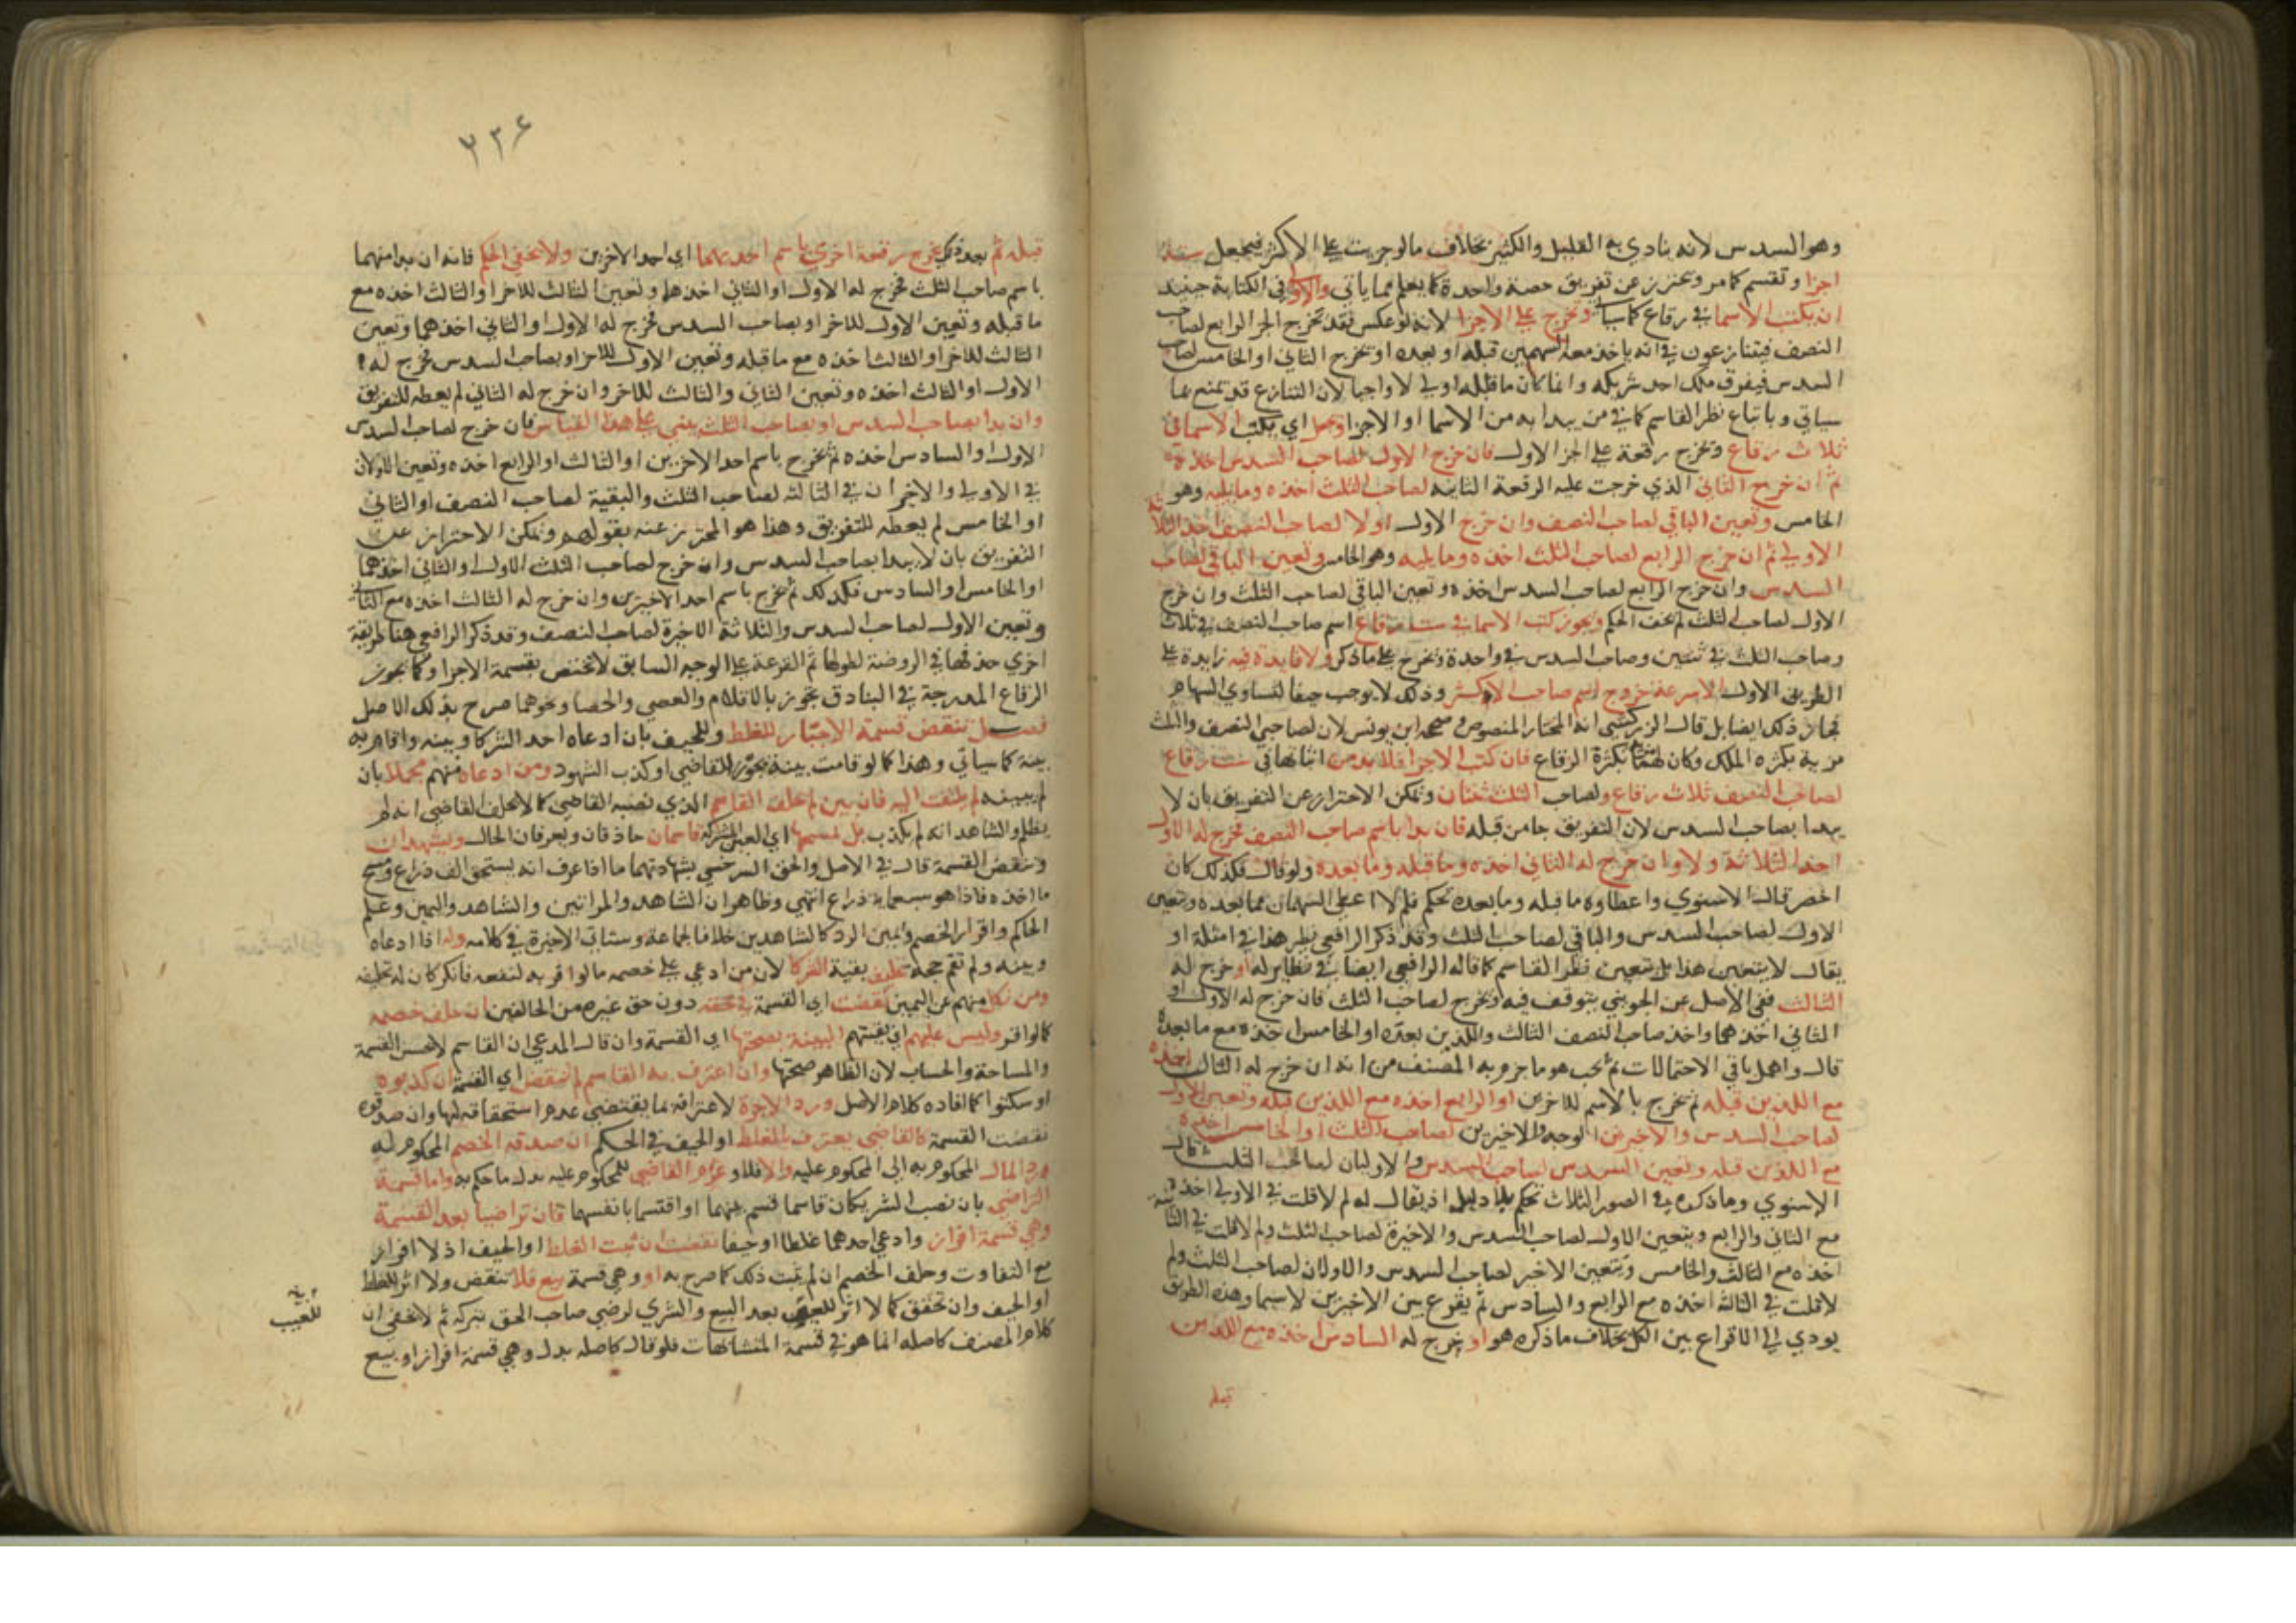 وهو السدس لانه يتادي به القليل والكثير بخلاف مالو جزيت على الاكثر فيجعل ستة
اجزا وتقسم كما مر ويحترز عن تفريق حصة واحدة كما يعلم مما ياتي والاولى في الكتابة حينئذ
ان يكتب الاسما في رقاع كما سيا وتخرج على الاجزا لانه لو عكس فقد تخرج الجز الرابع لصاحب
النصف فيتنازعون في انه ياخذ معه السهمين قبله او بعده او تخرج الثاني او الخامس لصاحب
السدس فيفرق ملك احد شريكيه وانما كان ما قلناه اولى لا واجبا لان التنازع قد تمنع بما
سياتي وباتباع نظر القاسم كما في من يبدا به من الاسما او الاجزا اي يكتب الاسما في
ثلاث رقاع وتخرج رقعة على الجز الاول فان خرج الاول لصاحب السدس اخذه
ثم ان خرج الثاني الذي خرجت عليه الرقعة الثانية لصاحب الثلث اخذه وما يليه وهو
الخامس وتعين الباقي لصاحب النصف وان خرج الاول اولا لصاحب النصف اخذ الثلاثة
الاولى ثم ان خرج الرابع لصاحب الثلث اخذه وما يليه وهو الخامس وتعين الباقي لصاحب
السدس وان خرج الرابع لصاحب السدس اخذه وتعين الباقي لصاحب الثلث وان خرج
الاول لصاحب الثلث لم يخف الحكم ويجوز كتب الاسما في ست رقاع اسم صاحب النصف في ثلاث
وصاحب الثلث في ثنتين وصاحب السدس في واحدة وتخرج على ما ذكر ولا فايدة فيه زايدة على
الطريق الاول الا سرعة خروج اسم صاحب الاكثر وذلك لا يوجب حيفا لتساوي السهام
فجاز ذلك ايضا بل قال الزركشي انه المختار المنصوص وصححه ابن يونس لان لصاحبي النصف والثلث
مزية بكثرة الملك وكان لهما بكثرة الرقاع فان كتب الاجزا فلا بد من اثباتها في ست رقاع
لصاحب النصف ثلاث رقاع ولصاحب الثلث ثنتان ويمكن الاحتراز عن التفريق بان لا
يبدا بصاحب السدس لان التفريق جا من قبله فان بدا باسم صاحب النصف فخرج له الاول
اخذ الثلاثة ولا وان خرج له الثاني اخذه وما قبله وما بعده ولو قال فكذلك كان
اخصر قال الاسنوي واعطاوه ما قبله وما بعده تحكم فلم لا اعطي السهمان مما بعده وتعين
الاول لصاحب السدس والباقي لصاحب الثلث وقد ذكر الرافعي نظير هذا في امثلة او
يقال لا يتعين هذا بل يتعين نظر القاسم كما قاله الرافعي ايضا في نظايره او خرج له
الثالث ففي الاصل عن الجويني يتوقف فيه وتخرج لصاحب الثلث فان خرج له الاول او
الثاني اخذهما واخذ صاحب النصف الثالث واللذين بعده او الخامس اخذه مع ما بعده
قال واهمل باقي الاحتمالات ثم بحث هو ما جزم به المصنف من انه ان خرج له الثالث اخذه
مع اللذين قبله ثم تخرج بالاسم للاخرين او الرابع اخذه مع اللذين قبله وتعين الاول
لصاحب السدس والاخيرين لصاحب الثلث او الخامس اخذه
مع اللذين قبله وتعين السدس لصاحب السدس والاوليان لصاحب الثلث قال
الاسنوي وما ذكره في الصور الثلاث تحكم بلا دليل اذ يقال له لم لا قلت في الاولى اخذه
مع الثاني والرابع ويتعين الاول لصاحب السدس والاخيرة لصاحب الثلث ولم لا قلت في الثانية
اخذه مع الثالث والخامس ويتعين الاخير لصاحب السدس والاولان لصاحب الثلث ولم
لا قلت في الثالثة اخذه مع الرابع والسادس ثم يقرع بين الاخيرين لا سيما وهذه الطريق
يودي الى الاقراع بين الكل بخلاف ما ذكره هو او خرج له السادس اخذه مع اللذين
قبله
٣٢٦
قبله ثم بعد ذلك تخرج رقعة اخرى باسم احدهما اي احد الاخرين ولا يخفى الحكم فانه ان بدا منهما
باسم صاحب الثلث فخرج له الاول او الثاني اخذهما وتعين الثالث للاخر او الثالث اخذه مع
ما قبله وتعين الاول للاخر او بصاحب السدس فخرج له الاول او الثاني اخذهما وتعين
الثالث للاخر او الثالث اخذه مع ما قبله وتعين الاول للاخر او بصاحب السدس فخرج له
الاول او الثالث اخذه وتعين الثاني والثالث للاخر وان خرج له الثاني لم يعطه للتفريق
وان بدا بصاحب السدس او بصاحب الثلث يبنى على هذا القياس فان خرج لصاحب السدس
الاول او السادس اخذه ثم تخرج باسم احد الاخرين او الثالث او الرابع اخذه وتعين الاولان
في الاولى والاخيران في الثالثة لصاحب الثلث والبقية لصاحب النصف او الثاني
او الخامس لم يعطه للتفريق وهذا هو المحترز عنه بقولهم ويمكن الاحتراز عن
التفريق بان لا يبدا بصاحب السدس وان خرج لصاحب الثلث الاول او الثاني اخذهما
او الخامس او السادس فكذلك ثم تخرج باسم احد الاخيرين وان خرج له الثالث اخذه مع الثاني
وتعين الاول لصاحب السدس والثلاثة الاخيرة لصاحب النصف وقد ذكر الرافعي هنا طريقة
اخري حذفها في الروضة لطولها ثم القرعة على الوجه السابق لا تختص بقسمة الاجزا وكما تجوز
الرقاع المدرجة في البنادق تجوز بالاقلام والعصي والحصا ونحوهما صرح بذلك الاصل
فصل تنقض قسمة الاجبار للغلط وللحيف بان ادعاه احد الشركا وبينه واقام به
بينة كما سياتي وهذا كما لو قامت بينة بجور القاضي او كذب الشهود ومن ادعاه منهم مجملا بان
لم يبينه لم يلتفت اليه فان بين لم يحلف القاسم الذي نصبه القاضي كما لا يحلف القاضي انه لم
يظلم والشاهد انه لم يكذب بل يمسحها اي العين المشتركة قاسمان حاذقان ويعرفان الحال ويشهدان
وتنقض القسمة قال في الاصل والحق السرخسي بشهادتهما ما اذا عرف انه يستحق الف ذراع ومسح
ما اخذه فاذا هو سبعماية ذراع انتهى وظاهر ان الشاهد والمراتين والشاهد واليمين وعلم
الحاكم واقرار الخصم ويمين الرد كالشاهدين خلافا لجماعة وستاتي الاخيرة في كلامه وله اذا ادعاه
وبينه ولم تقم حجة تحليف بقية الشركا لان من ادعي على خصمه ما لو اقر به لنفعه فانكر كان له تحليفه
ومن نكل منهم عن اليمين نقضت اي القسمة في حقه دون حق غيره من الحالفين ان حلف خصمه
كما لو اقر وليس عليهم اي بقيتهم البينة بصحتها اي القسمة وان قال المدعي ان القاسم لا يحسن القسمة
والمساحة والحساب لان الظاهر صحتها وان اعترف به القاسم لم تنقض اي القسمة ان كذبوه
او سكتوا كما افاده كلام الاصل ورد الاجرة لاعترافه بما يقتضي عدم استحقاقه لها وان صدقوه
نقضت القسمة كالقاضي يعترف بالغلط او الحيف في الحكم ان صدقه الخصم المحكوم له
رد المال المحكوم به الى المحكوم عليه والا فلا وغرم القاضي للمحكوم عليه بدل ما حكم به واما قسمة
التراضي بان نصب الشريكان قاسما قسم بينهما او اقتسما بانفسهما فان تراضيا بعد القسمة
وهي قسمة افراز وادعي احدهما غلطا او حيفا نقضت ان ثبت الغلط او الحيف اذ لا افراز
مع التفاوت وحلف الخصم ان لم يثبت ذلك كما صرح به او وهي قسمة بيع فلا تنقض ولا اثر للغلط
او الحيف وان تحقق كما لا اثر للعيب بعد البيع والشري لرضي صاحب الحق بتركه ثم لا يخفى ان
كلام المصنف كاصله انما هو في قسمة المتشابهات فلو قال كاصله بدل وهي قسمة افراز او بيع
للعيب